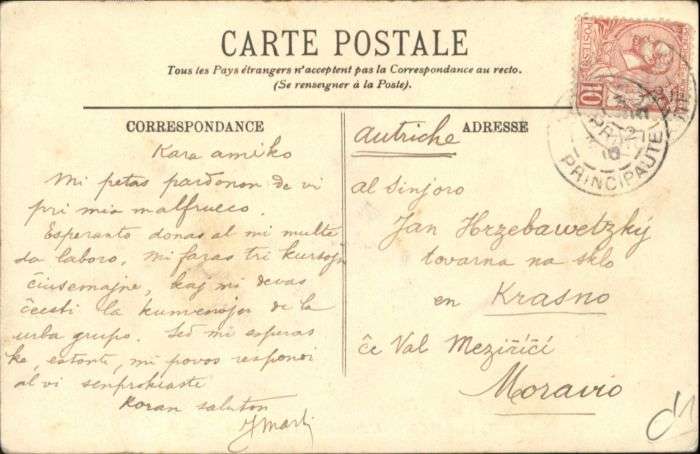 CARTE POSTALE
Tous les Pays étrangers n'acceptent pas la Correspondance au recto.
(Se renseigner à la Poste).
CORRESPONDANCE
ADRESSE
Kara amiko
Mi petas pardonon de vi
pri mia malfrueco.
Esperanto donas al mi multe
da laboro. Mi faras tri kursojn
ĉiusemajne, kaj mi devas
ĉeesti la kunvenojn de la
urba grupo. Sed mi esperas
ke, estonte, mi povos respondi
al vi senprokraste
Koran saluton
Autriche
al Sinjoro
Jan Hrzebawetzký
tovarna na sklo
en Krasno
ĉe Val Meziříčí
Moravio
10
PRINCIPAUTE